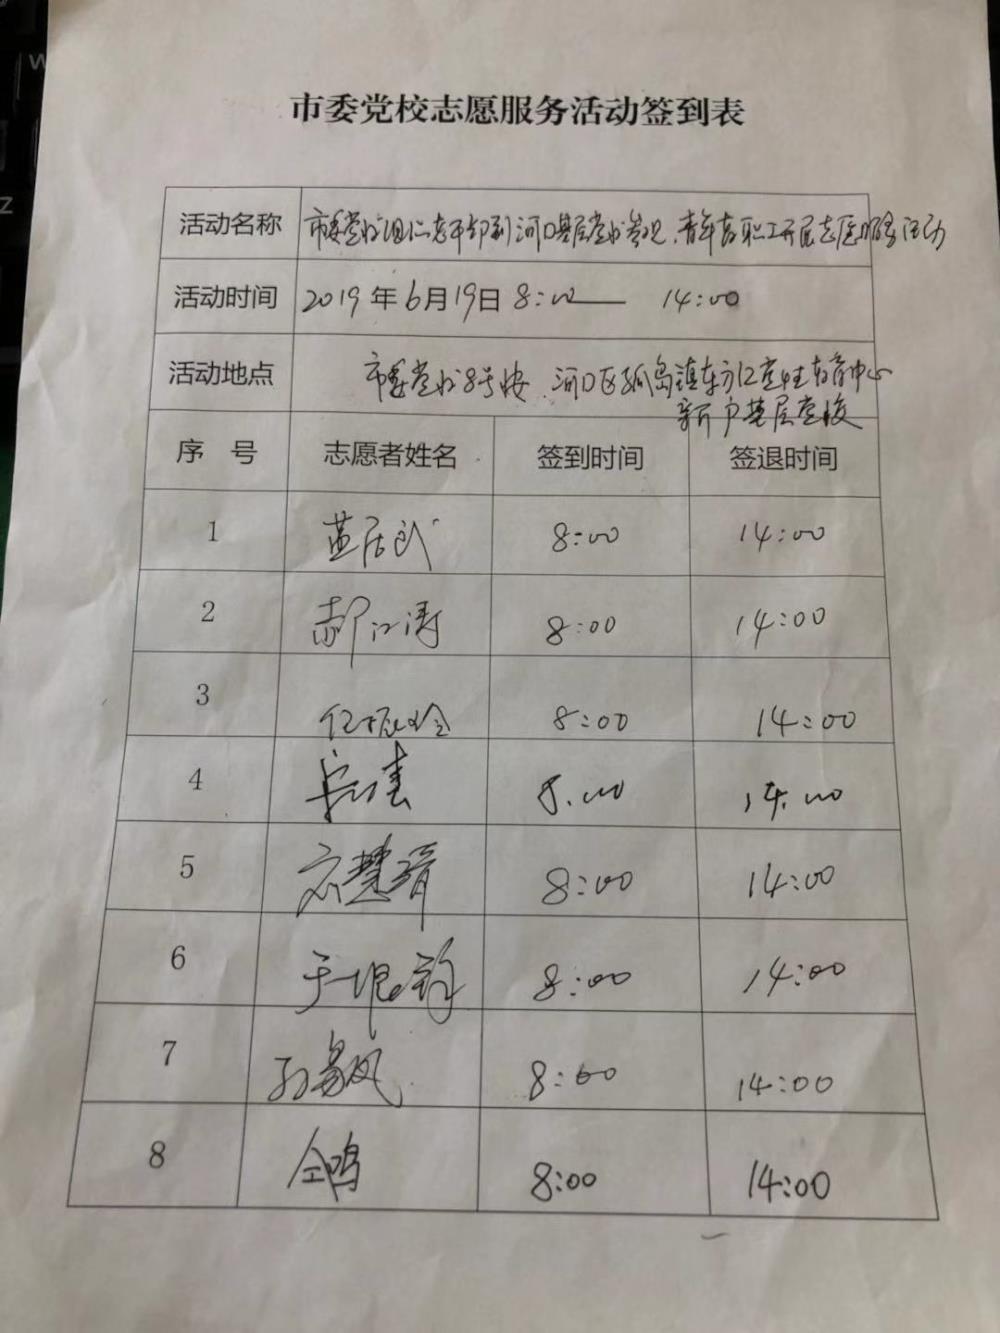 市委党校志愿服务活动签到表
活动名称 市委党校组织老干部到河口基层党校参观、青年教职工开展志愿服务活动
活动时间 2019年6月19日 8:00—— 14:00
活动地点 市委党校8号楼 河口区孤岛镇东方红党性教育中心
新户基层党校
序 号 志愿者姓名 签到时间 签退时间
1 8:00 14:00
2 郝江涛 8:00 14:00
3 任振玲 8:00 14:00
4 8:00 14:00
5 8:00 14:00
6 8:00 14:00
7 8:00 14:00
8 仝鸣 8:00 14:00